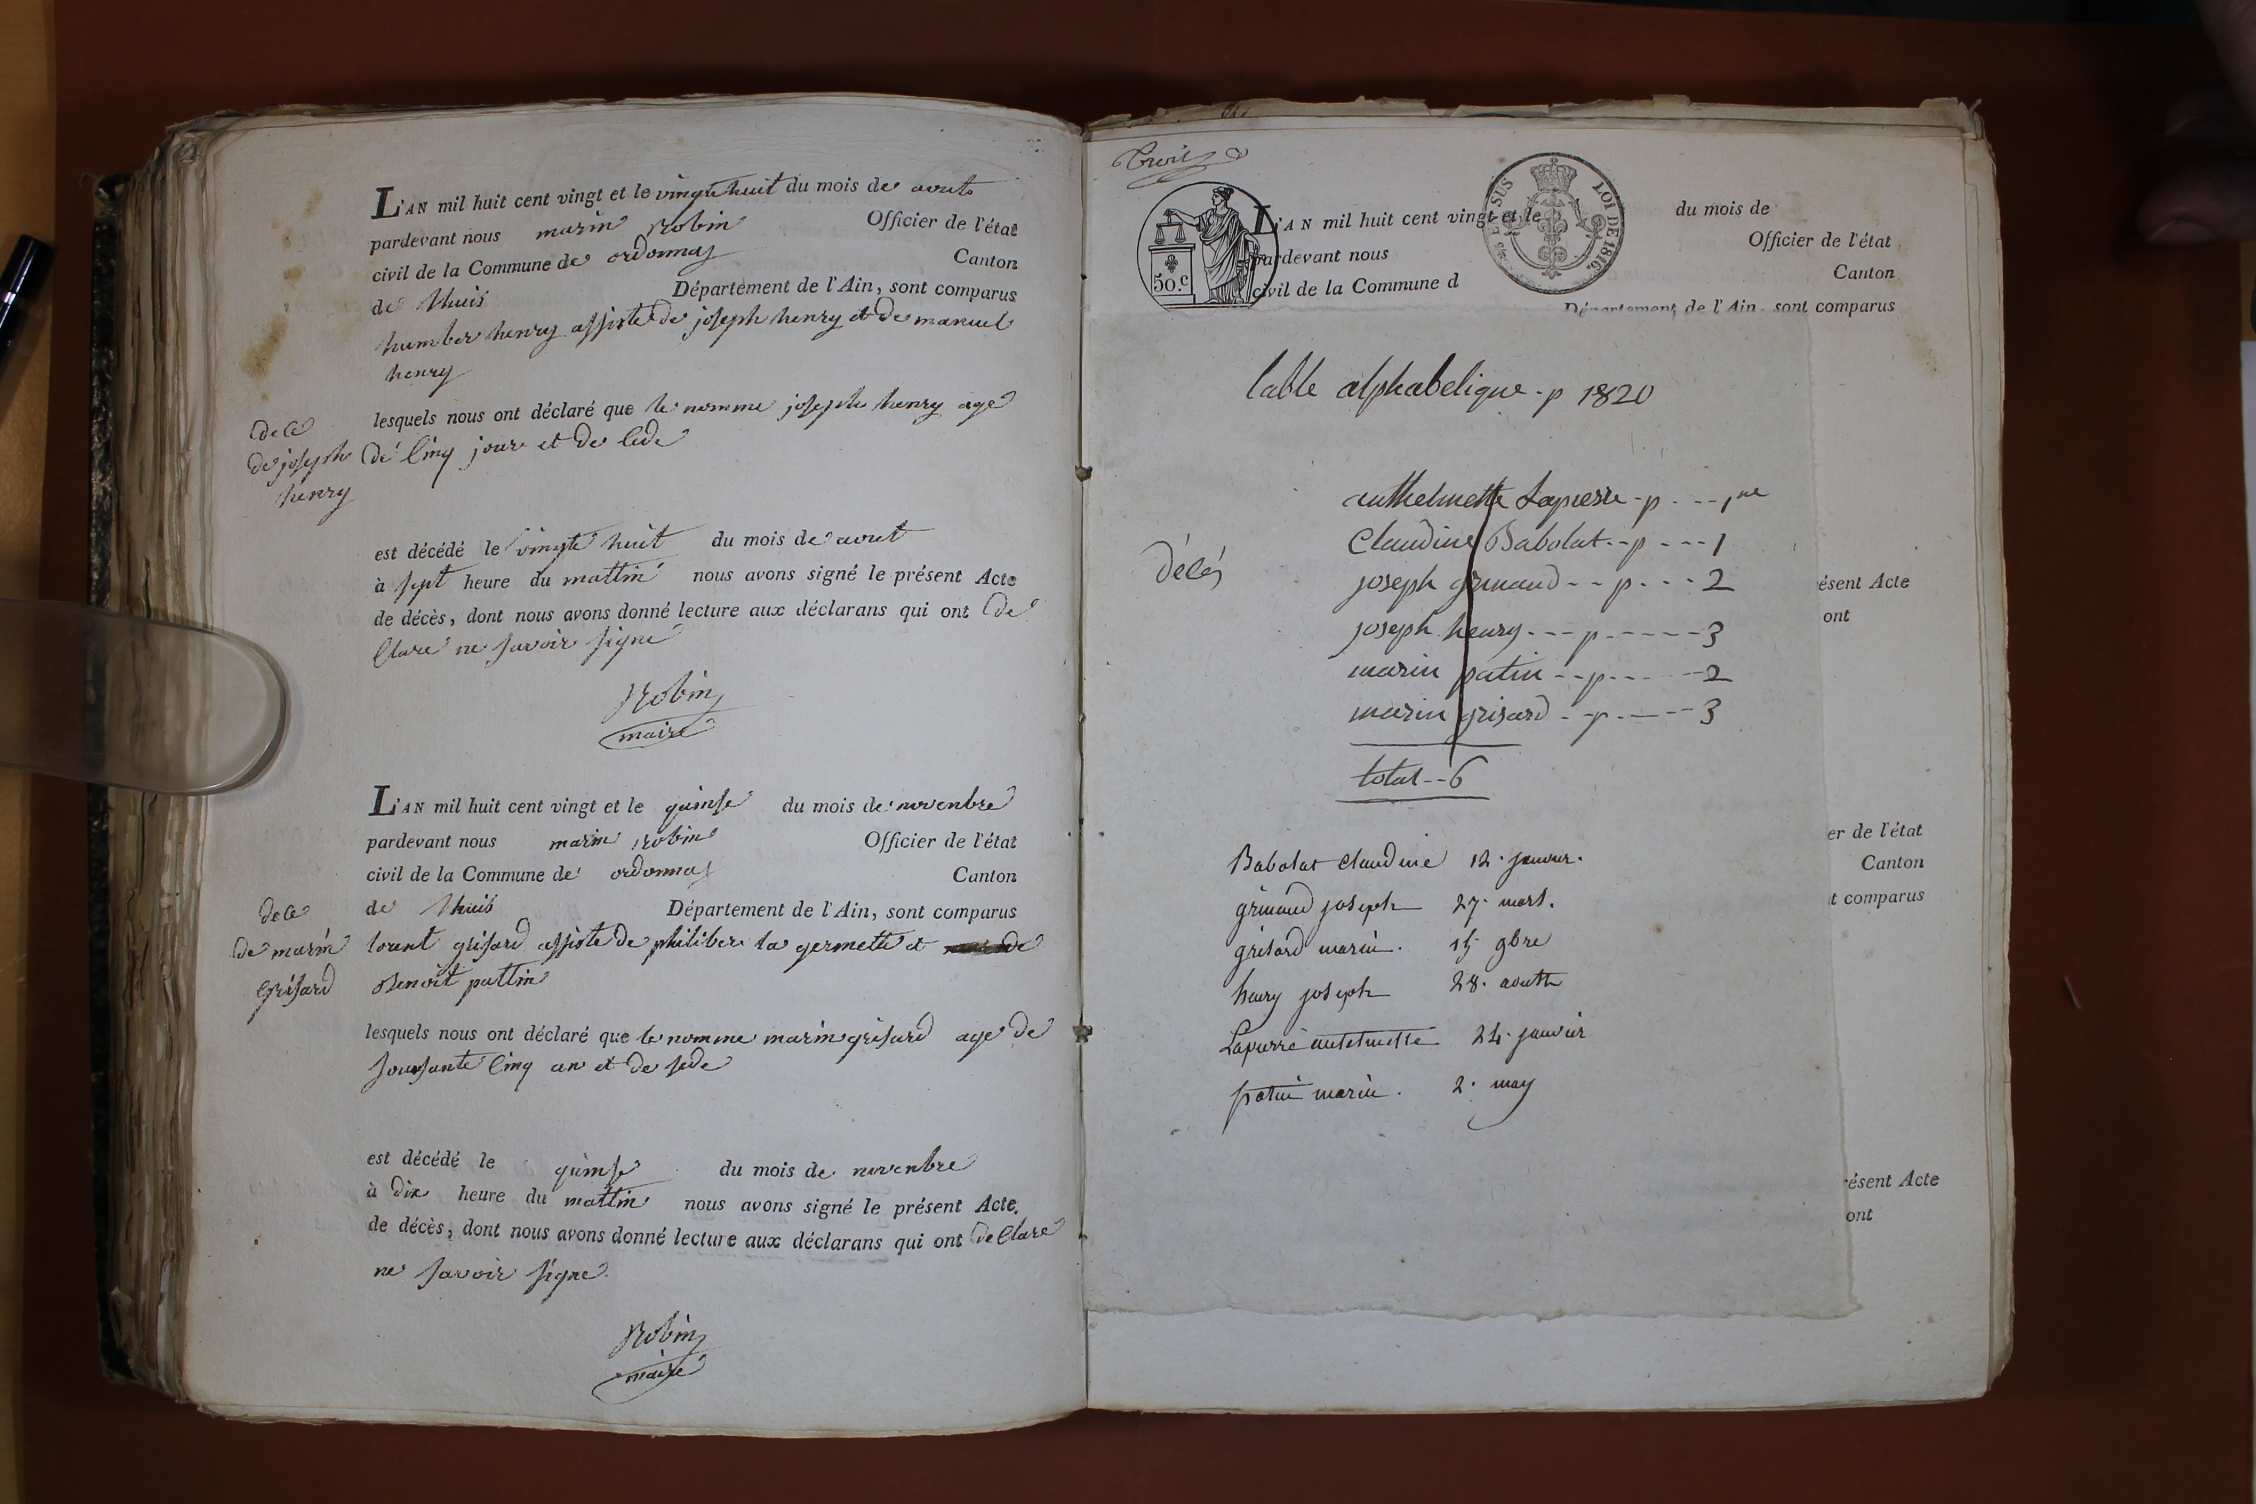 L'AN mil huit cent vingt et le vingte huit du mois de aout
pardevant nous marin Robin Officier de l'état
civil de la Commune de ordonnas Canton
de lhuis Département de l'Ain, sont comparus
humber henry assiste de joseph henry et de manuel
henry
lesquels nous ont déclaré que le nomme joseph henry age
de cinq jour et de cede
dece
de joseph
henry
est décédé le vingte huit du mois de aout
à sept heure du mattin nous avons signé le présent Acte
de décès, dont nous avons donné lecture aux déclarans qui ont de
clare ne savoir signe
Robin
maire
L'AN mil huit cent vingt et le quinse du mois de novenbre
pardevant nous marin robin Officier de l'état
civil de la Commune de ordonnas Canton
de lhuis Département de l'Ain, sont comparus
lorent grisard assiste de philiber la germette et de
Benoit pattin
dece
de marin
Grisard
lesquels nous ont déclaré que le nomme marin grisard age de
soussante cinq an et de sede
est décédé le quinse du mois de novenbre
à dix heure du mattin nous avons signé le présent Acte
de décès, dont nous avons donné lecture aux déclarans qui ont declare
ne savoir signe
Robin
maire
trois
50.c
EN SUS
LOI DE 1816.
L'AN mil huit cent vingt et le du mois de
pardevant nous Officier de l'état
civil de la Commune d Canton
Département de l'Ain, sont comparus
table alphabetique - p 1820
décés
anthelmette Lapierre - p - - - 1re
Claudine Babolat - - p - - - 1
joseph grimaud - - p - - - 2
joseph henry - - - p - - - - - 3
marin patin - - p - - - - - 2
marin grisard - - p - - - - 3
total - - 6
Babolat Claudine 12. janvier.
grimaud joseph 27. mars.
grisard marin. 15. 9bre
henry joseph 28. aoutt
Lapierre antelmette 24. janvier
patin marin. 2. may
résent Acte
ont
er de l'état
Canton
t comparus
résent Acte
ont